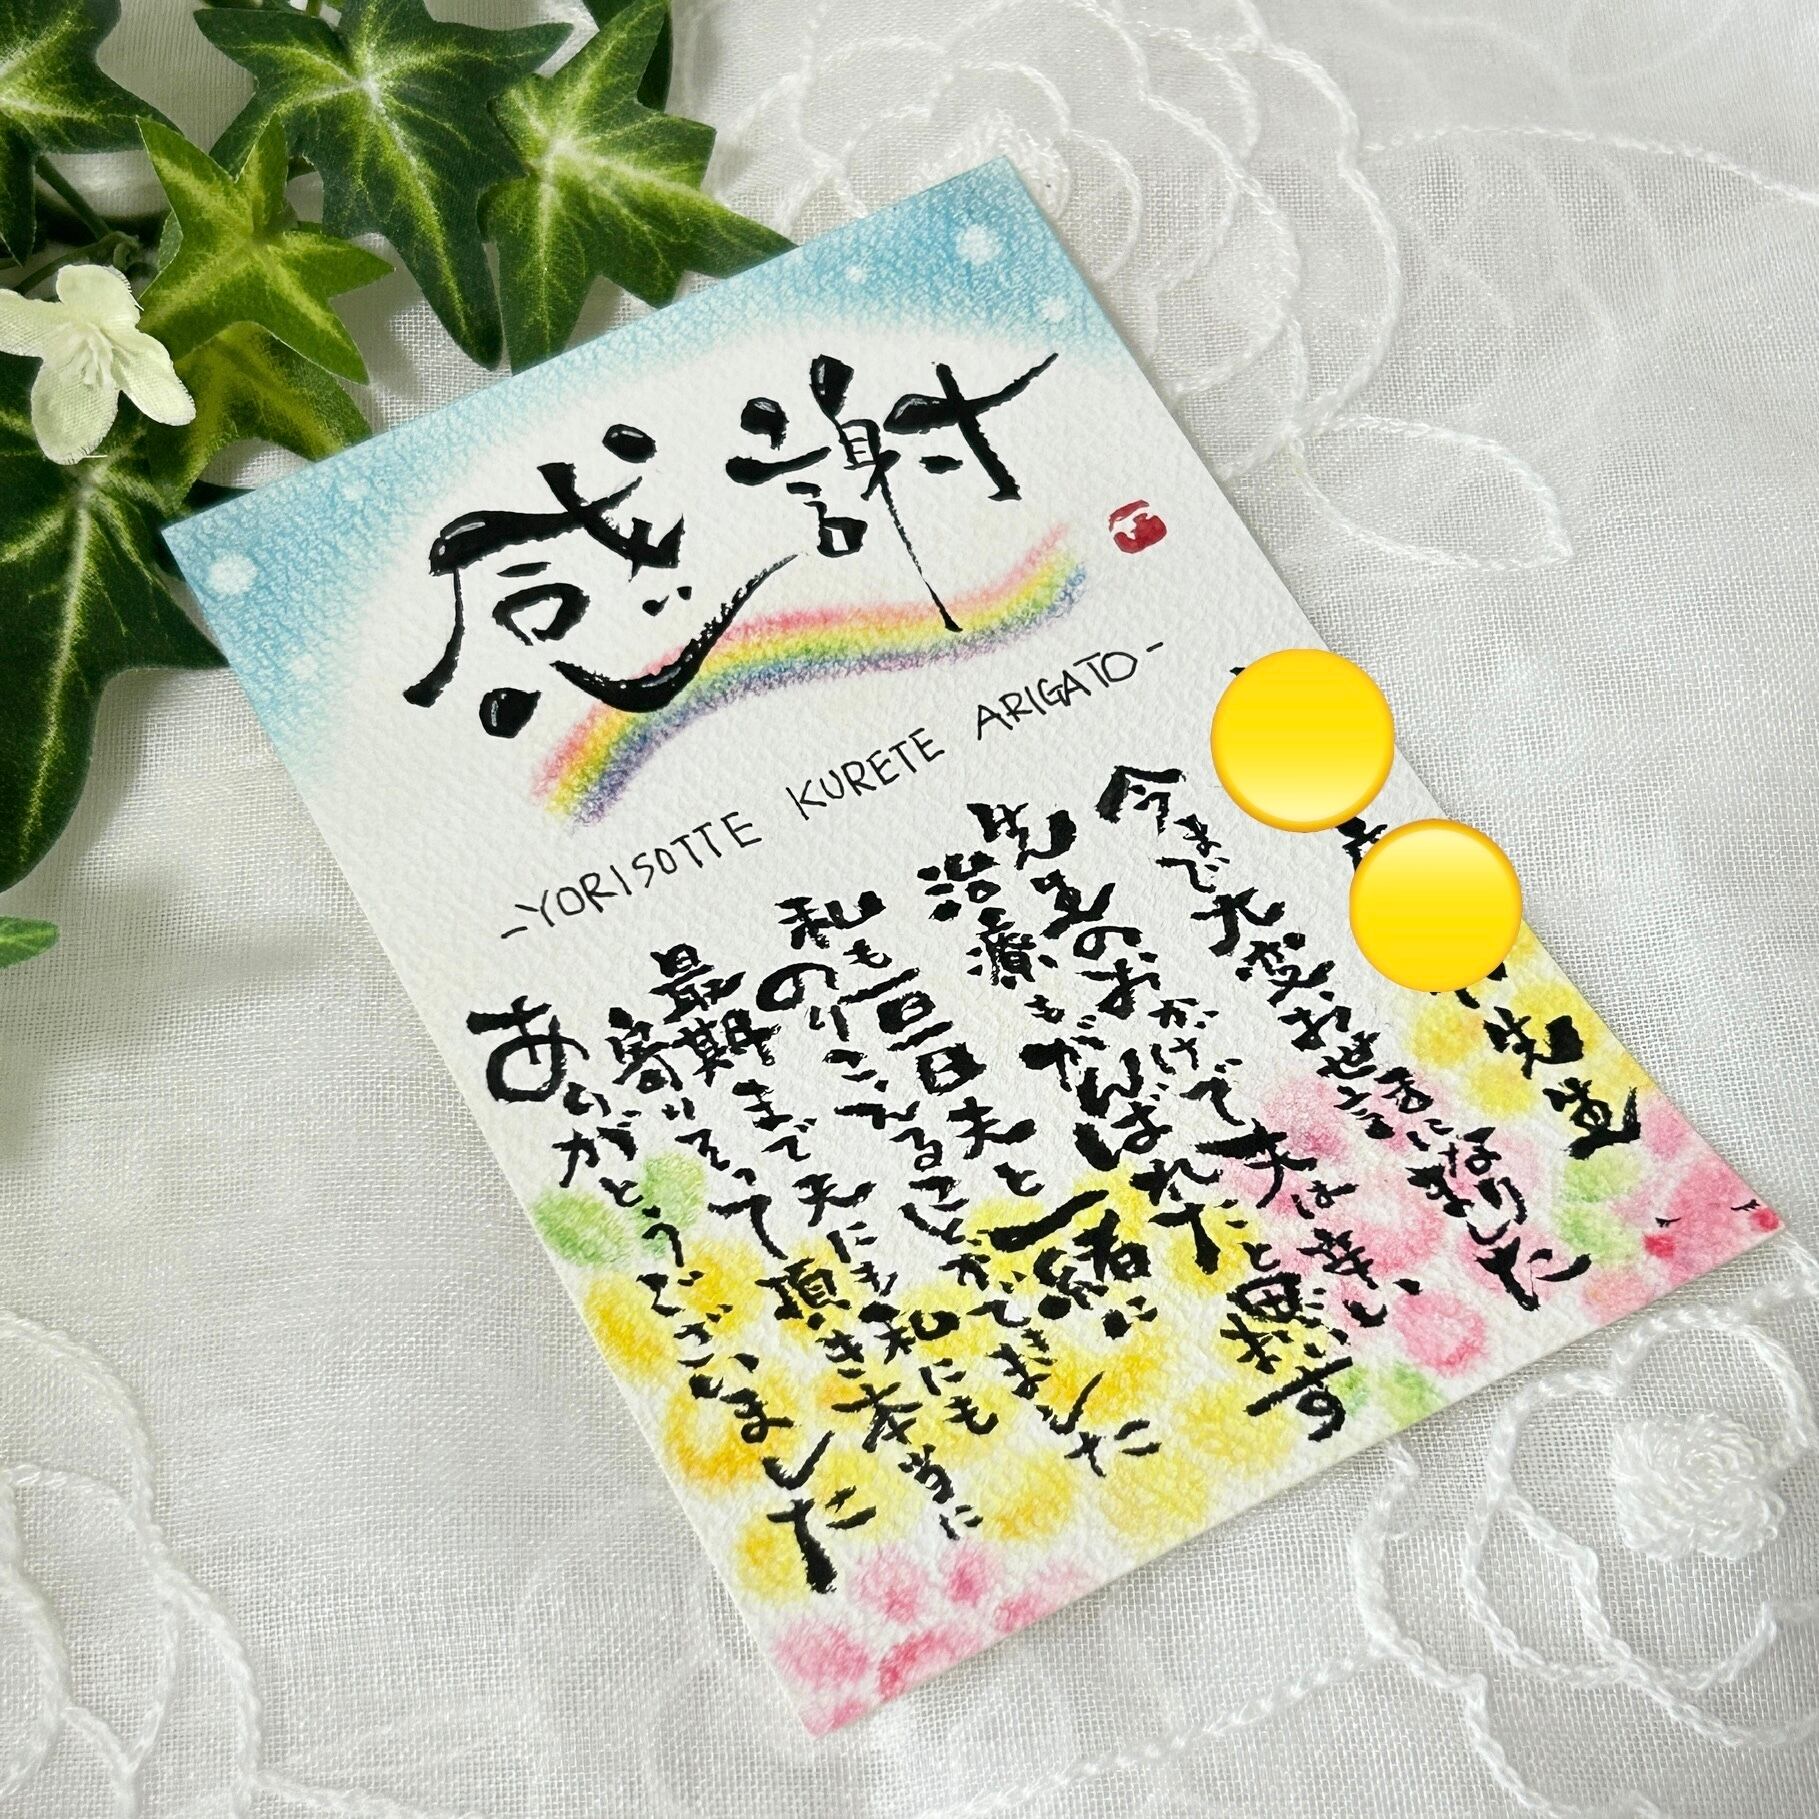 感謝
-YORISOTTE KURETE ARIGATO-
先生
今まで大変お世話になりました
先生のおかげで夫は辛い
治療もがんばれたと思います
私も亘夫と一緒に
のりこえることができました
最期まで夫にも私にも
寄りそって頂き本当に
ありがとうございました